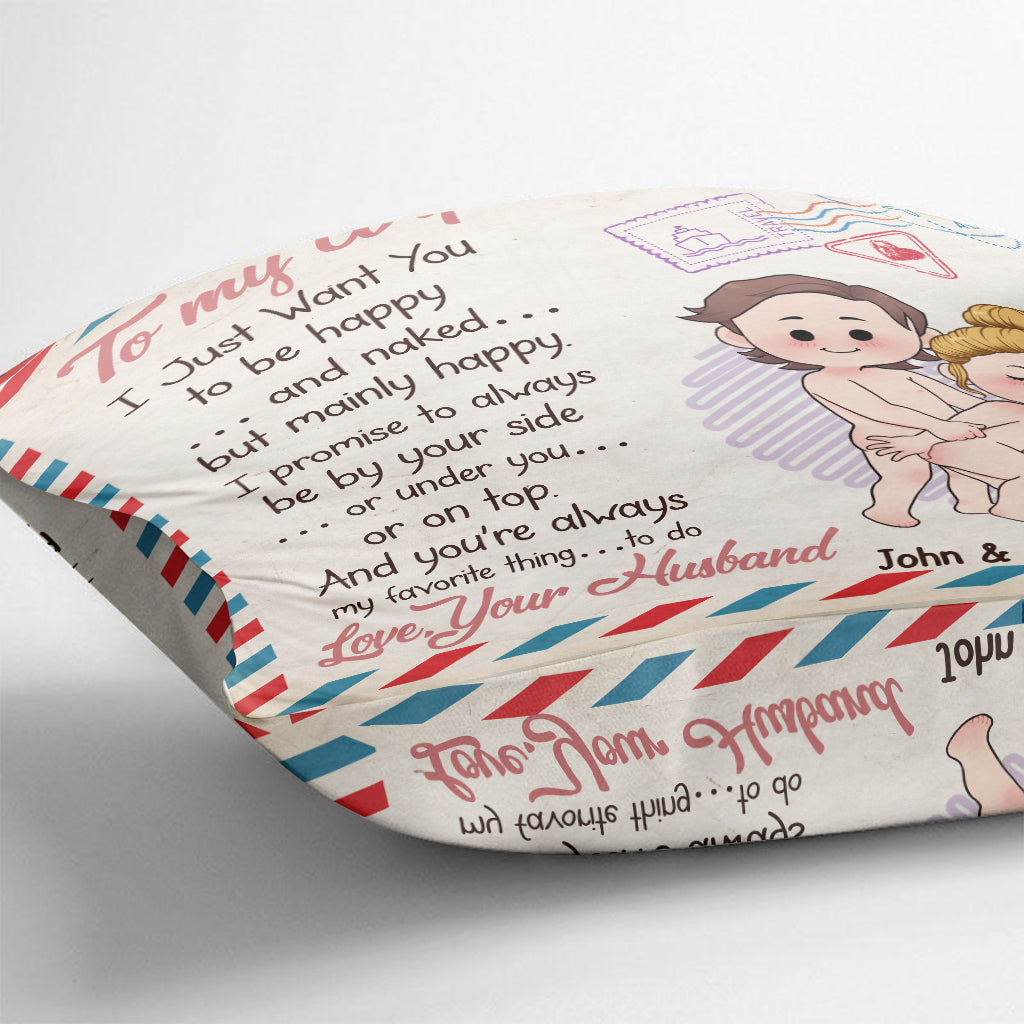 To my
I Just Want You
to be happy
... and naked...
but mainly happy.
I promise to always
be by your side
... or under you...
or on top.
And you're always
my favorite thing...to do
Love, Your Husband
John &
TRAVEL
John
Love, Your Husband
my favorite thing...to do
always